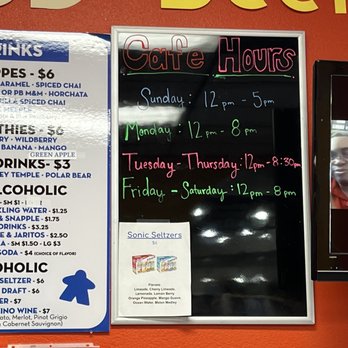 INKS
PPES - $6
ARAMEL - SPICED CHAI
OR PB M&M - HORCHATA
SPICED CHAI
THIES - $6
RY - WILDBERRY
BANANA - MANGO
GREEN APPLE
DRINKS- $3
EY TEMPLE - POLAR BEAR
COHOLIC
SM $1
LING WATER - $1.25
& SNAPPLE - $1.75
DRINKS - $3.25
E & JARITOS - $2.50
A - SM $1.50 - LG $3
SODA - $4 (CHOICE OF FLAVOR)
OHOLIC
SELTZER - $6
DRAFT - $6
ER - $7
INO WINE - $7
ato, Merlot, Pinot Grigio
Cabernet Sauvignon)
Cafe Hours
Sunday: 12pm - 5pm
Monday: 12pm - 8pm
Tuesday - Thursday: 12pm - 8:30pm
Friday - Saturday: 12pm - 8pm
Sonic Seltzers
$6
Flavors
Limeade, Cherry Limeade
Lemonade, Lemon Berry
Orange Pineapple, Mango Guava
Ocean Water, Melon Medley